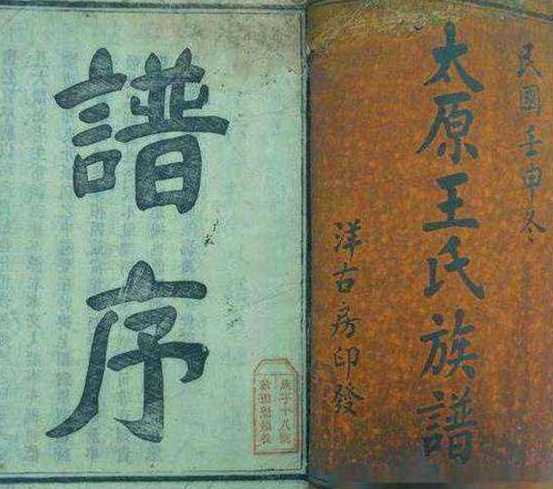 民國壬申冬
太原王氏族譜
洋古房印發
譜序